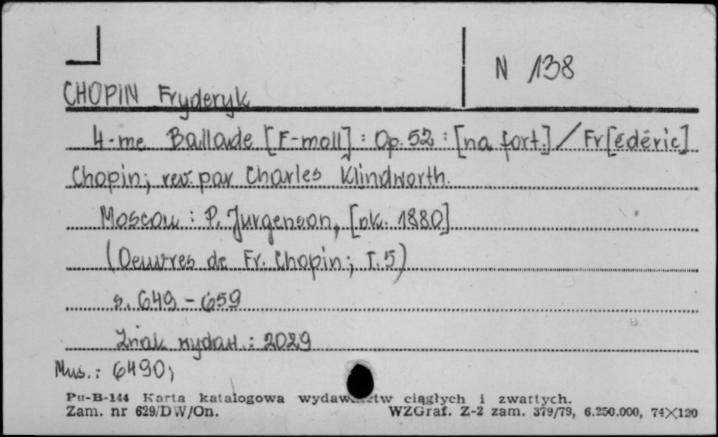 N 138
CHOPIN Fryderyk
4-me Ballade [F-moll] : Op. 52 : [na fort.] / Fr[édéric]
Chopin; rev. par Charles Klindworth.
Moscou : P. Jurgenson, [ok. 1880]
(Oeuvres de Fr. Chopin; T.5)
s. 649-659
Znak wydaw.: 2029
Mus.: 6490;
Pu-B-144 Karta katalogowa wydawnictw ciągłych i zwartych.
Zam. nr 629/DW/On. WZGraf. Z-2 zam. 379/79, 6.250.000, 74×120